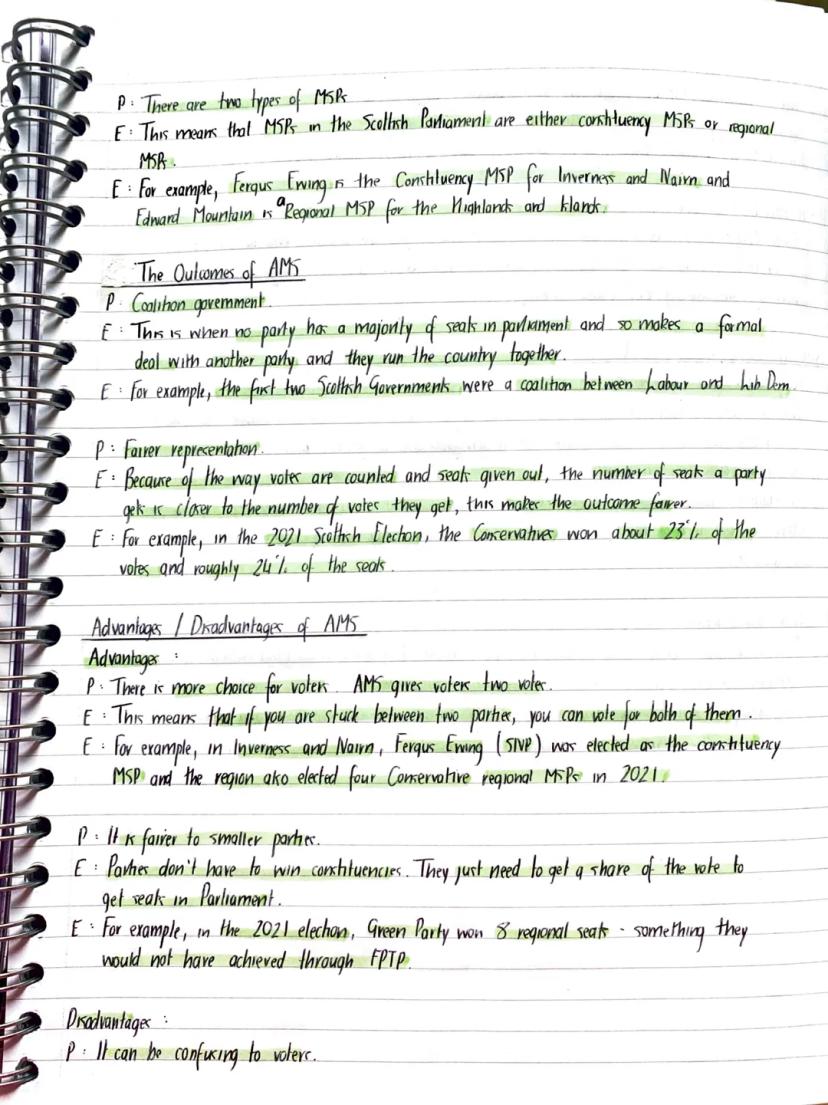 P: There are two types of MSPs
E: This means that MSPs in the Scottish Parliament are either constituency MSPs or regional
MSPs.
E: For example, Fergus Ewing is the Constituency MSP for Inverness and Nairn and
Edward Mountain is a Regional MSP for the Highlands and Islands.
The Outcomes of AMS
P: Coalition government.
E: This is when no party has a majority of seats in parliament and so makes a formal
deal with another party and they run the country together.
E: For example, the first two Scottish Governments were a coalition between Labour and Lib Dem
P: Fairer representation.
E: Because of the way votes are counted and seats given out, the number of seats a party
gets is closer to the number of votes they get, this makes the outcome fairer.
E: For example, in the 2021 Scottish Election, the Conservatives won about 23% of the
votes and roughly 24% of the seats.
Advantages / Disadvantages of AMS
Advantages :
P: There is more choice for voters. AMS gives voters two votes.
E: This means that if you are stuck between two parties, you can vote for both of them.
E: For example, in Inverness and Nairn, Fergus Ewing (SNP) was elected as the constituency
MSP and the region also elected four Conservative regional MSPs in 2021.
P: It is fairer to smaller parties.
E: Parties don't have to win constituencies. They just need to get a share of the vote to
get seats in Parliament.
E: For example, in the 2021 election, Green Party won 8 regional seats - something they
would not have achieved through FPTP.
Disadvantages :
P: It can be confusing to voters.